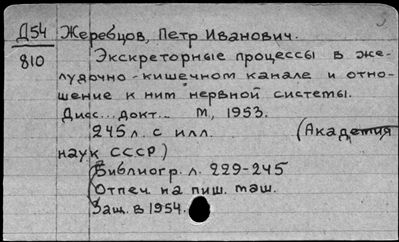 Д54 Жеребцов, Петр Иванович.
810 Экскреторные процессы в же-
лудочно-кишечном канале и отно-
шение к ним нервной системы.
Дисс... докт... М, 1953.
245л. с илл. (Академия
наук СССР)
Библиогр. л. 229-245
Отпеч. на пиш. маш.
Защ. в 1954.